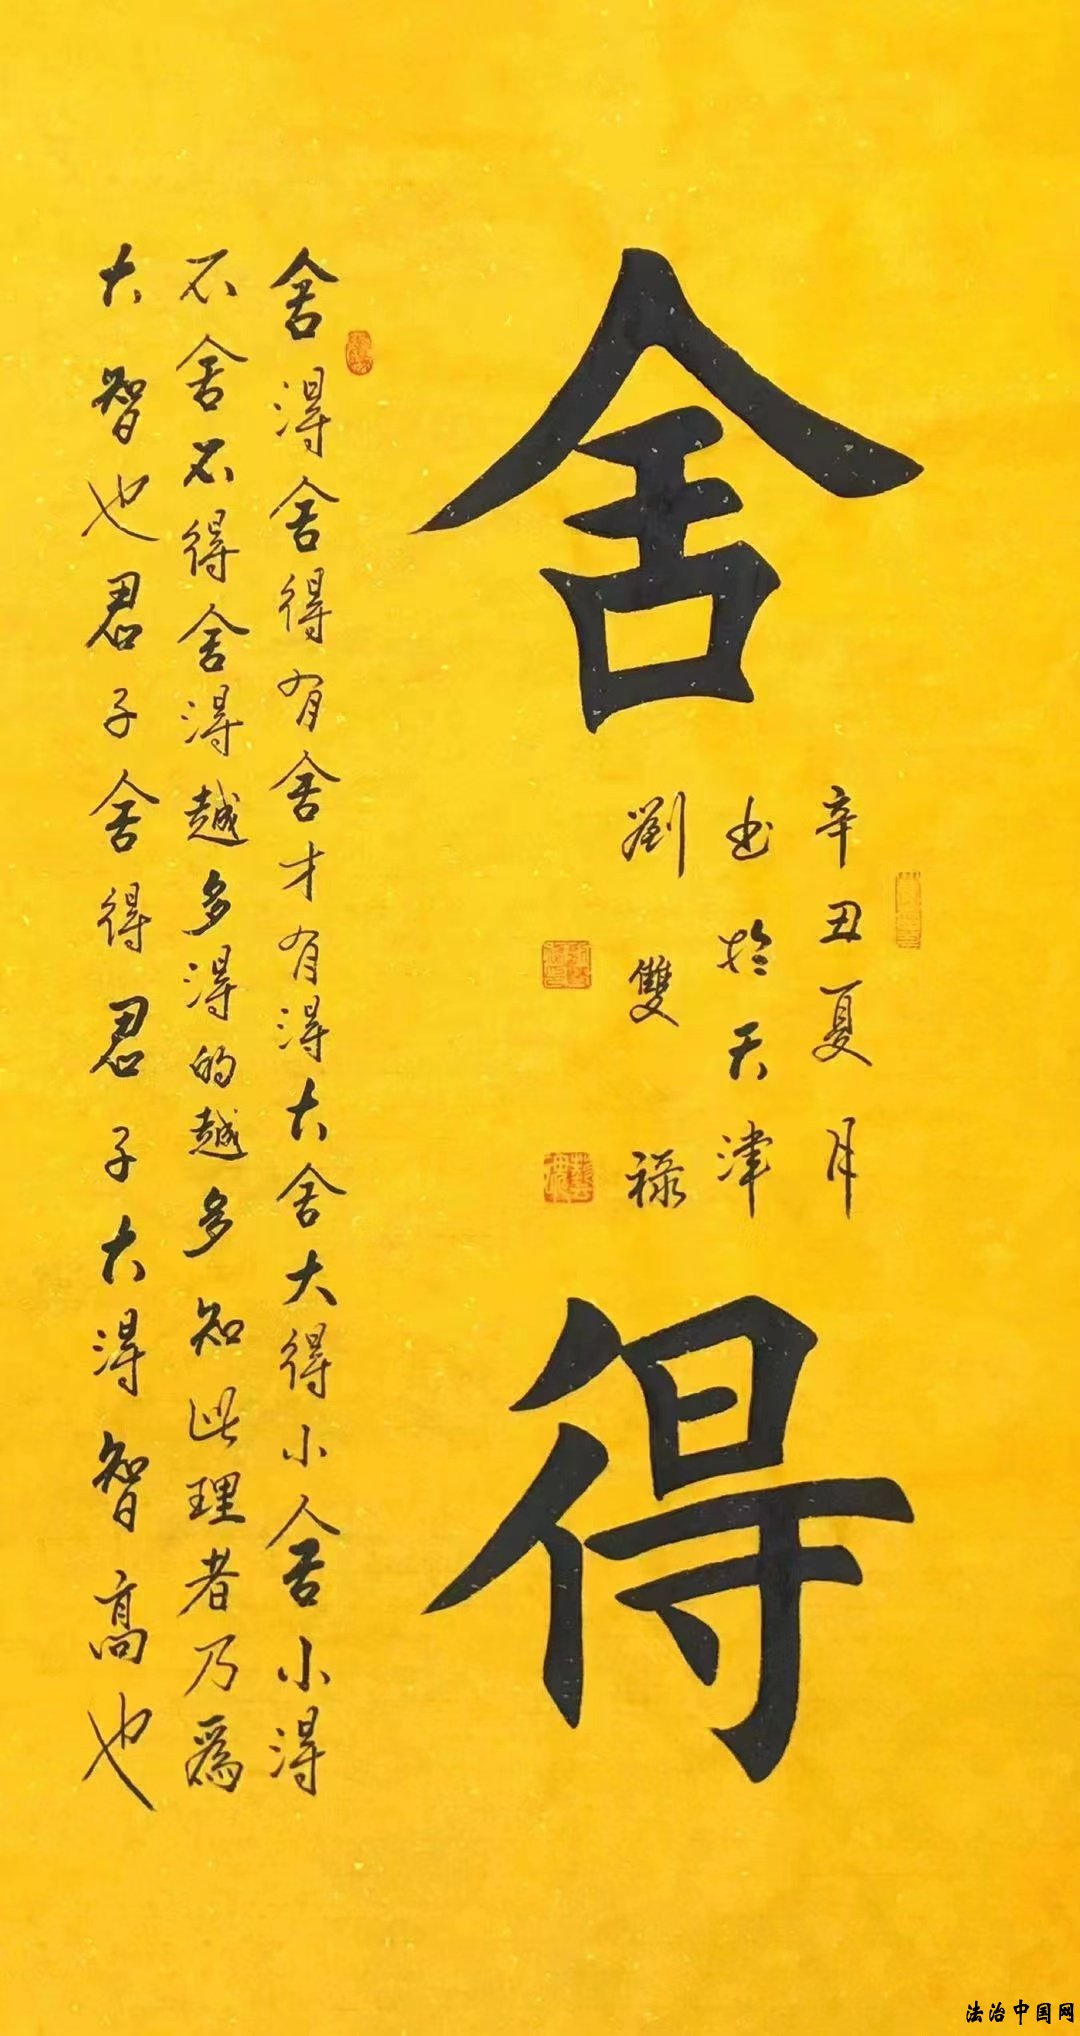 舍得
辛丑夏月
书於天津
劉雙禄
舍得舍得有舍才有得大舍大得小舍小得
不舍不得舍得越多得的越多知此理者乃爲
大智也君子舍得君子大得智高也
法治中国网